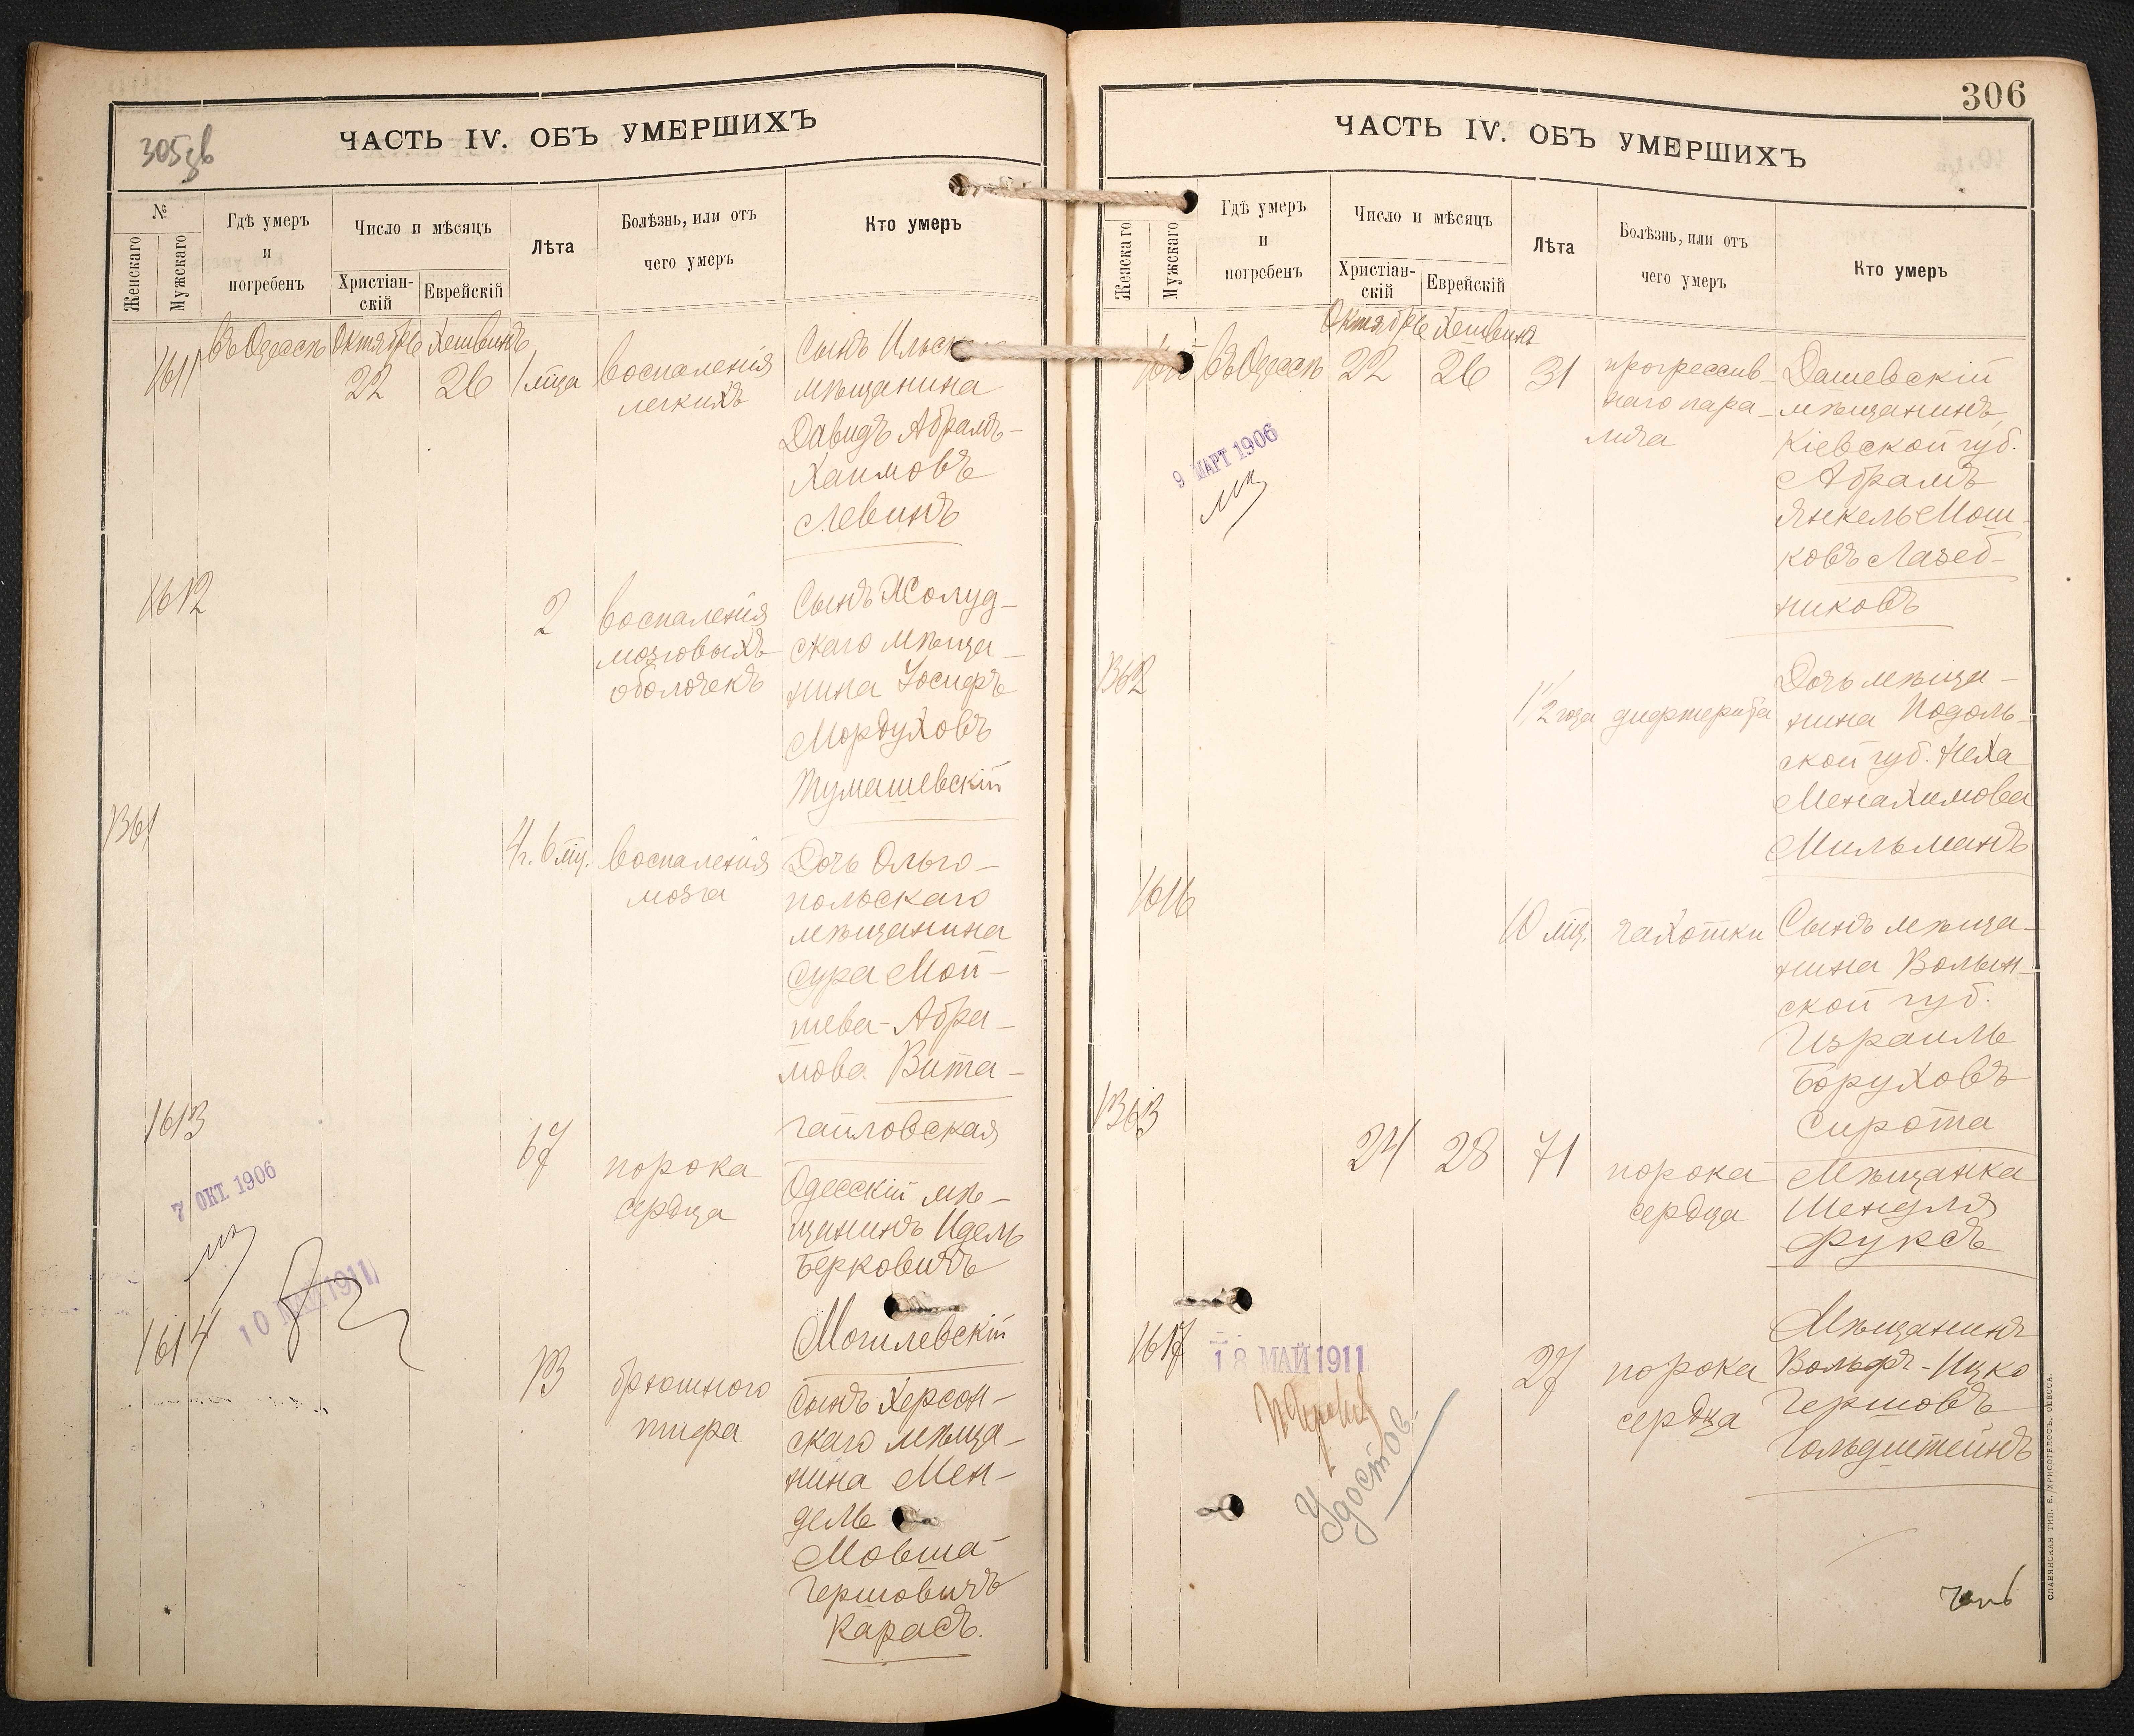 305зв
ЧАСТЬ IV. ОБЪ УМЕРШИХЪ
№
Женскаго
Мужскаго
Гдѣ умеръ
и
погребенъ
Число и мѣсяцъ
Христіан-
скій
Еврейскій
Лѣта
Болѣзнь, или отъ
чего умеръ
Кто умеръ
1611
въ Одессѣ
Октябрь
Хешвинъ
22
26
1 мѣца
воспаленія
легкихъ
Сынъ
мѣщанина
Давидъ Абрамъ-
Хаимовъ
Левинъ
1612
2
воспаленія
мозговыхъ
оболочекъ
Сынъ Жолуд-
скаго мѣща-
нина Іосифъ
Мордуховъ
Тумашевскій
1361
4 г. 6 мѣц.
воспаленія
мозга
Дочь Ольго-
польскаго
мѣщанина
Сура Мой-
шева-Абра-
мова Вита-
гайловская
1613
67
порока
сердца
Одесскій мѣ-
щанинъ Идель
Берковичъ
Могилевскій
7 ОКТ 1906
10 МАЙ 1911
1614
13
брюшного
тифа
Сынъ Херсон-
скаго мѣща-
нина Мен-
дель
Мовша-
Гершовичъ
Карасъ.
306
ЧАСТЬ IV. ОБЪ УМЕРШИХЪ
Женскаго
Мужскаго
Гдѣ умеръ
и
погребенъ
Число и мѣсяцъ
Христіан-
скій
Еврейскій
Лѣта
Болѣзнь, или отъ
чего умеръ
Кто умеръ
въ Одессѣ
Октябрь
Хешвинъ
22
26
31
прогрессив-
наго пара-
лича
Дашевскій
мѣщанинъ,
Кіевской губ.
Абрамъ
Янкель Мош-
ковъ Лазеб-
никовъ
9 МАРТ 1906
1362
1 1/2 года
дифтерита
Дочь мѣща-
нина Подоль-
ской губ. Неха
Менахимова
Мильманъ
1616
10 мѣц.
чахотки
Сынъ мѣща-
нина Волын-
ской губ.
Израиль
Боруховъ
Сирота
1363
24
28
71
порока
сердца
Мѣщанка
Шендля
Фуксъ
1617
18 МАЙ 1911
Удостов.
27
порока
сердца
Мѣщанинъ
Вольфъ-Ицко
Гершовъ
Гольдштейнъ
СЛАВЯНСКАЯ ТИП. Е. ХРИСОГЕЛОСЪ, ОДЕССА.